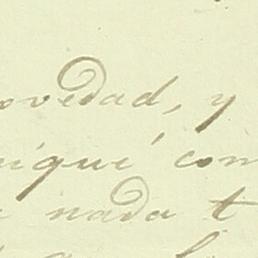 ovedad, y
nique' com
nada t